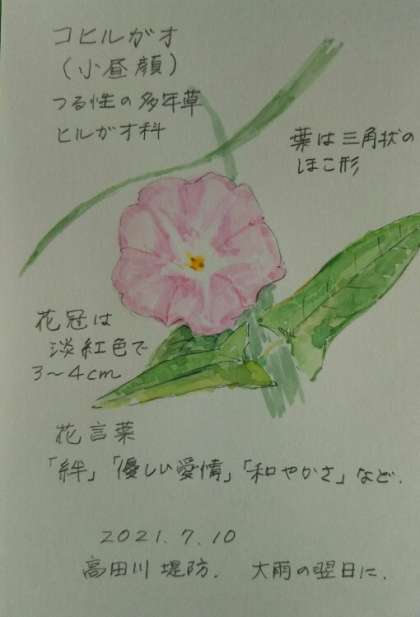 コヒルガオ
(小昼顔)
つる性の多年草
ヒルガオ科
葉は三角状の
ほこ形
花冠は
淡紅色で
3〜4cm
花言葉
「絆」「優しい愛情」「和やかさ」など.
2021.7.10
高田川堤防. 大雨の翌日に.